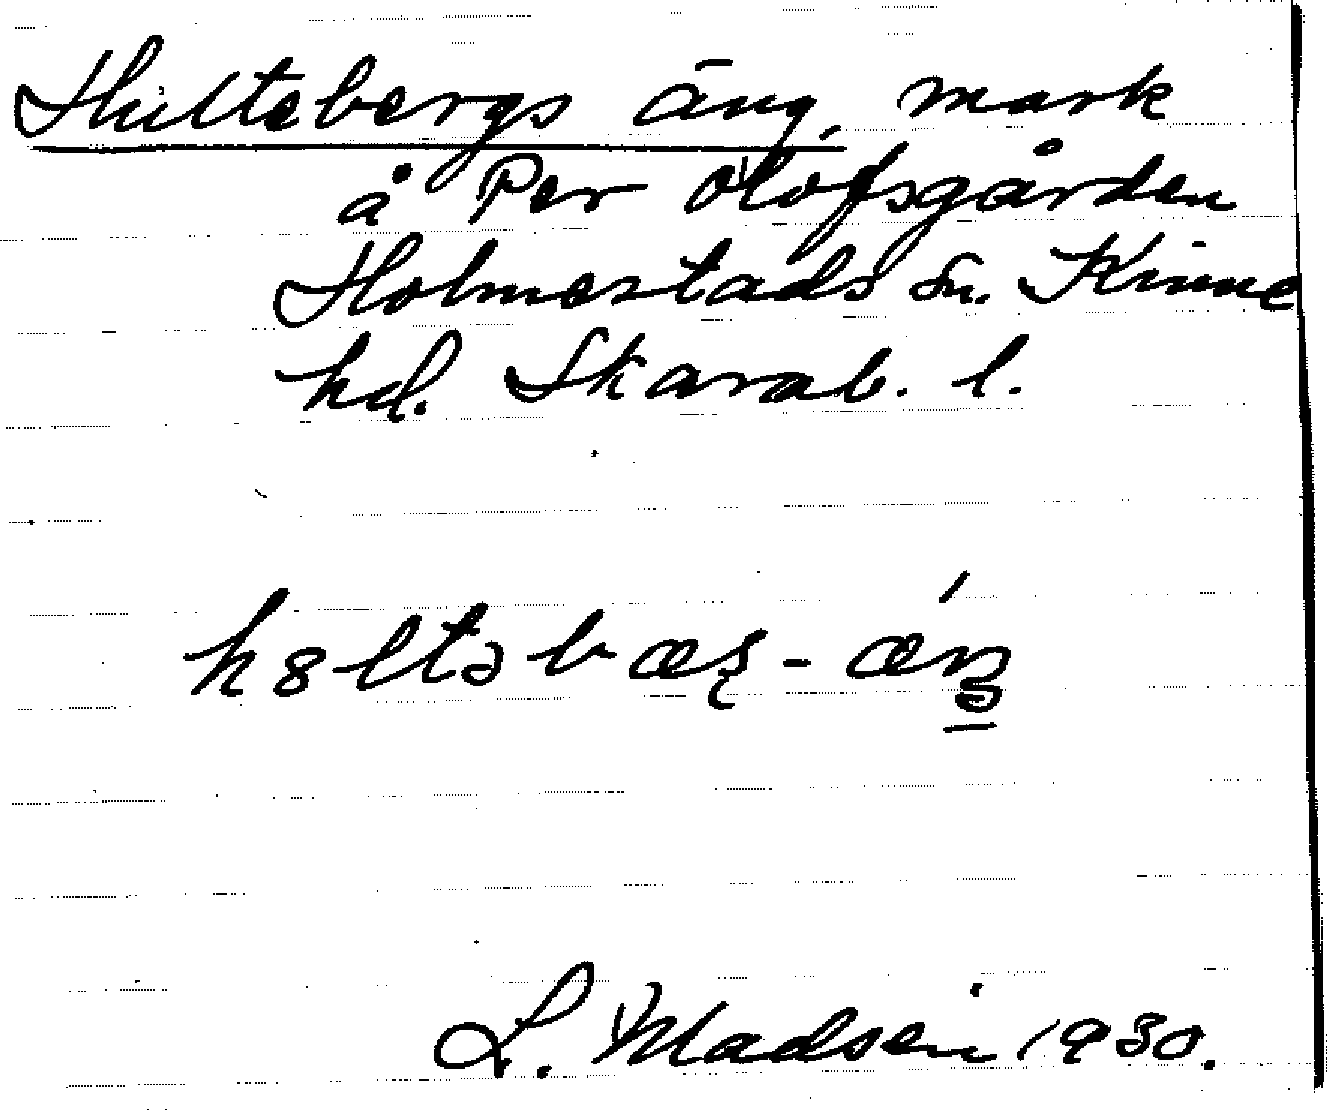 Hultebergs äng, mark
å Per Olofsgården
Holmestads sn. Kinne
hd. Skarab. l.
L. Madsen 1930.